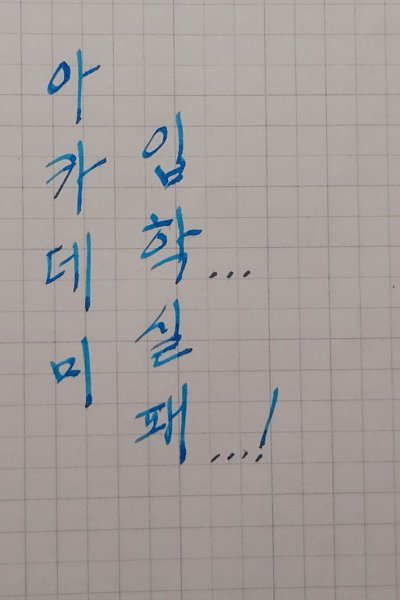 아카데미
입학...
실패...!